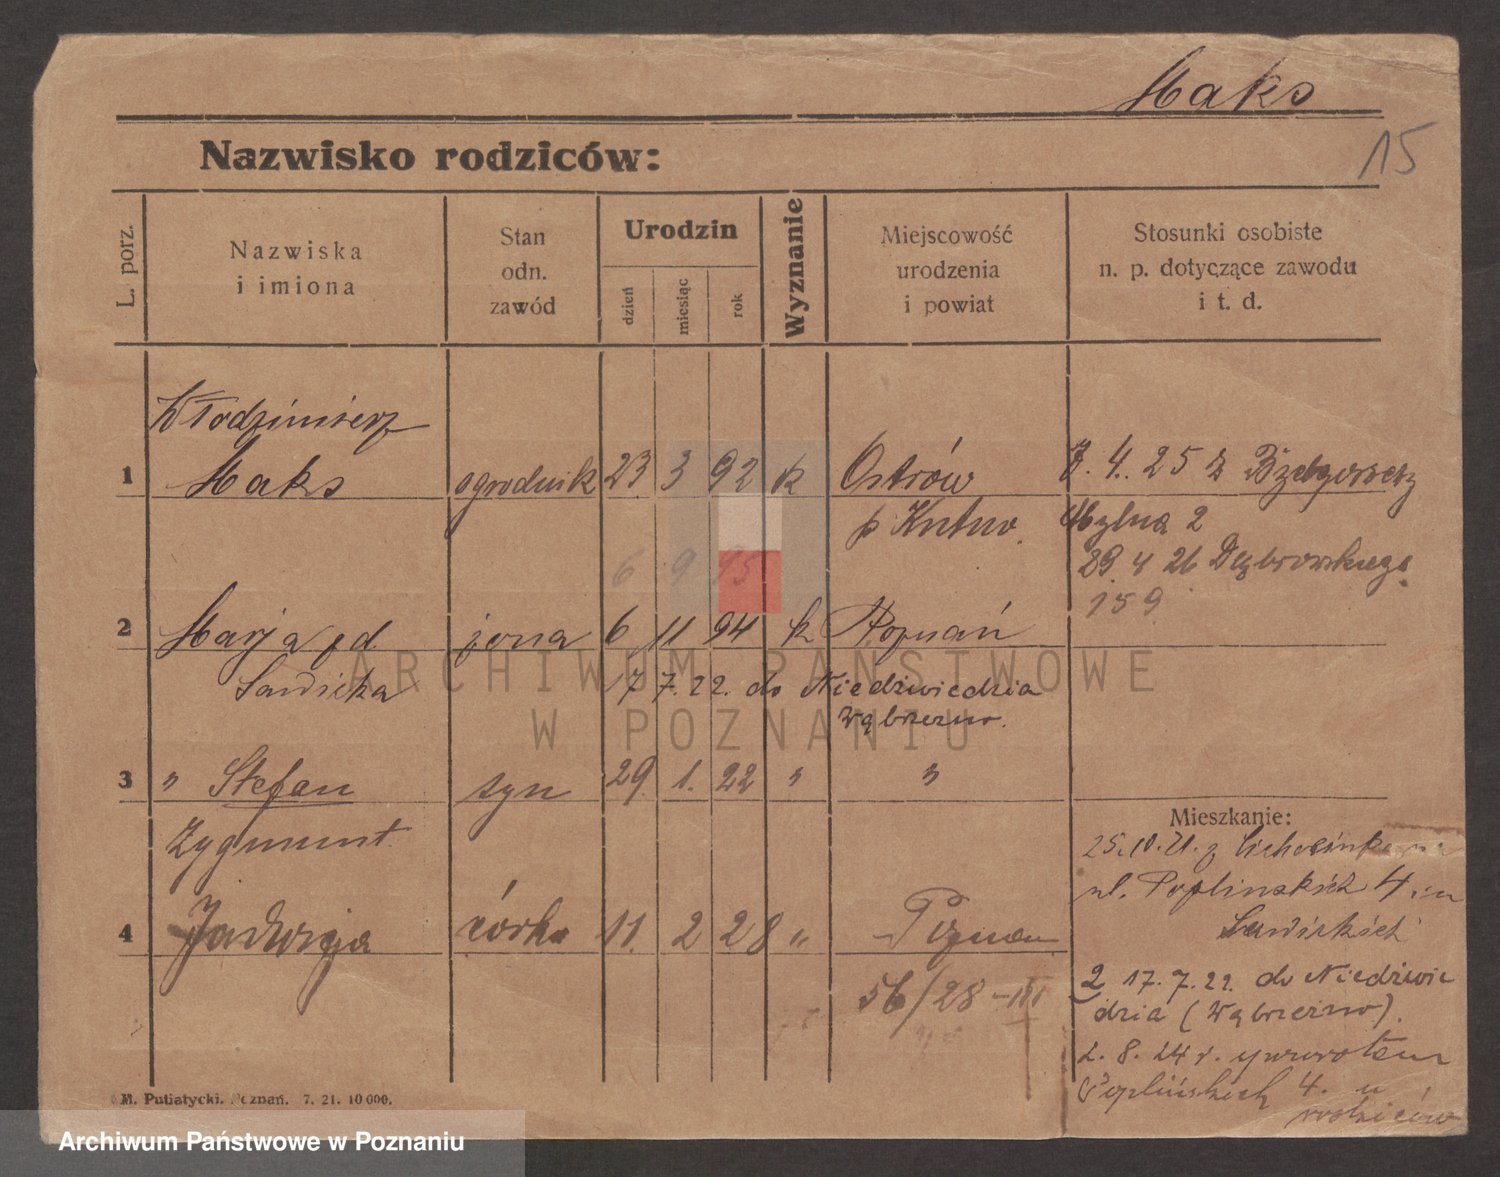 Maks
15
Nazwisko rodziców:
L. porz.
Nazwiska
i imiona
Stan
odn.
zawód
Urodzin
dzień
miesiąc
rok
Wyznanie
Miejscowość
urodzenia
i powiat
Stosunki osobiste
n. p. dotyczące zawodu
i t. d.
Włodzimierz
1 Maks ogrodnik 23 3 92 k Ostrów 7. 4. 25 z
p Kutno. 2
6 9 15 29 4 26 Dąbrowskiego
159
2 Marja żona 6 11 94 k Poznań
Sawicka 17 7. 22. do Niedźwiedzia
Wąbrzeźno.
3 " Stefan syn 29. 1. 22 " "
Zygmunt
Mieszkanie:
25. 10. 21. z
ul. Poplińskich 4.
Sawickich
4 Jadwiga córka 11. 2 28 " Poznań
56/28-III
2 17. 7. 22. do Niedźwie
dzia (Wąbrzeźno).
2. 8. 24 r.
Poplińskich 4. u
rodziców
M. Putiatycki. Poznań. 7. 21. 10 000.
ARCHIWUM PAŃSTWOWE
W POZNANIU
Archiwum Państwowe w Poznaniu